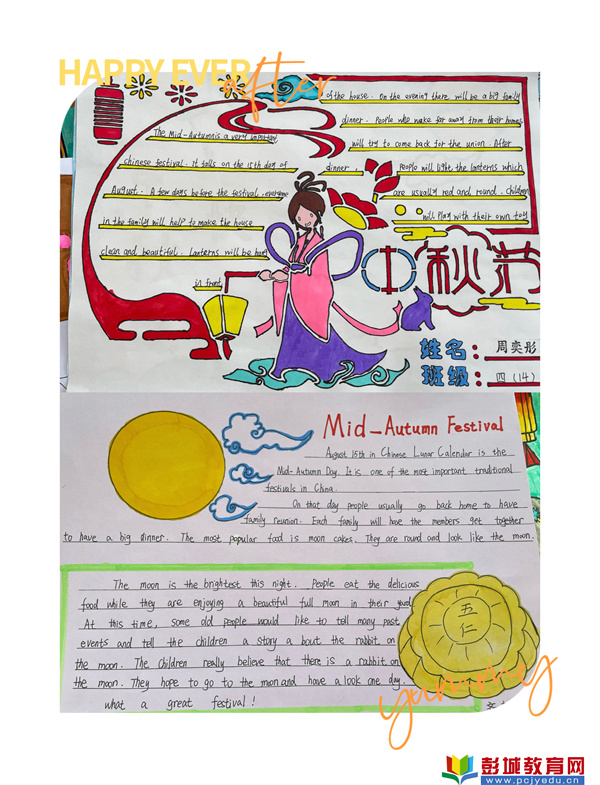 HAPPY EVER after
The Mid-Autumn is a very important
chinese festival. It falls on the 15th day of
August. A few days before the festival, everyone
in the family will help to make the house
clean and beautiful. Lanterns will be hung
in front
of the house. On the evening there will be a big family
dinner. People who make far away from their homes
will try to come back for the union. After
dinner People will light the lanterns which
are usually red and round. Children
will play with their own toy
中秋节
姓名: 周奕彤
班级: 四(14)
Mid-Autumn Festival
August 15th in Chinese Lunar Calendar is the
Mid-Autumn Day. It is one of the most important traditional
festivals in China.
On that day people usually go back home to have
family reunion. Each family will have the members get together
to have a big dinner. The most popular food is moon cakes. They are round and look like the moon.
The moon is the brightest this night. People eat the delicious
food while they are enjoying a beautiful full moon in their yard.
At this time, some old people would like to tell many past
events and tell the children a story a bout the rabbit on
the moon. The children really believe that there is a rabbit on
the moon. They hope to go to the moon and have a look one day.
what a great festival!
五仁
yummy
彭城教育网
www.pcjyedu.cn